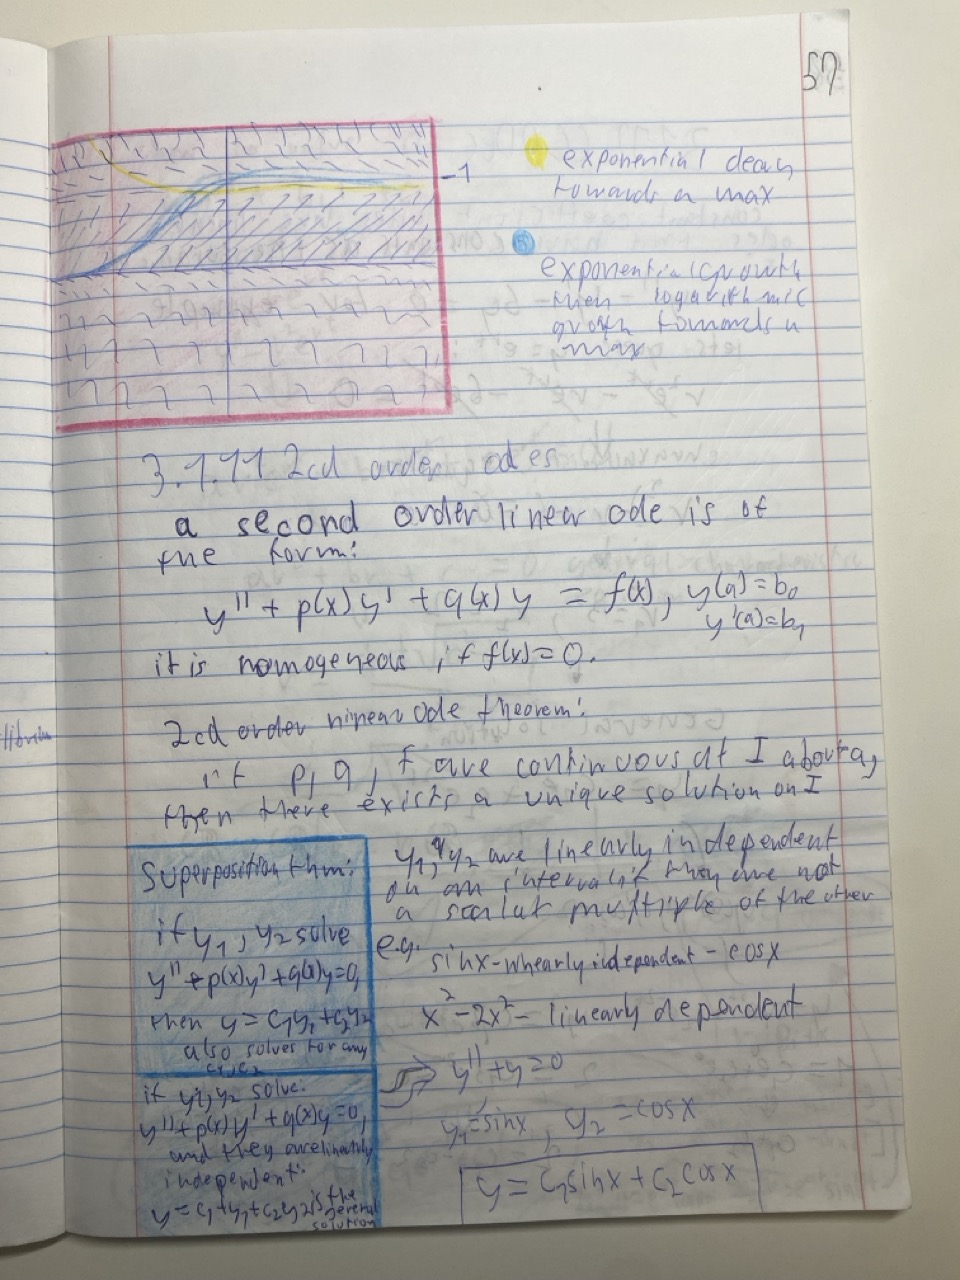 57
-1
exponential decay
towards a max
exponential growth
then logarithmic
growth towards a
max
3.1.11 2cd order odes
a second order linear ode is of
the form:
y'' + p(x)y' + q(x)y = f(x), y(a)=b₀
y'(a)=b₁
it is homogeneous if f(x)=0.
2cd order linear ode theorem:
if p, q, f are continuous at I about a,
then there exists a unique solution on I
Superposition thm:
if y₁, y₂ solve
y''+p(x)y'+q(x)y=0,
then y = c₁y₁+c₂y₂
also solves for any
c₁,c₂
if y₁,y₂ solve:
y''+p(x)y'+q(x)y=0,
and they are linearly
independent:
y = c₁+y₁+c₂y₂ is the
general
solution
y₁, y₂ are linearly independent
on an interval if they are not
a scalar multiple of the other
e.g.
sinx - independent - cosx
x² - 2x² - linearly dependent
y''+y=0
y₁=sinx, y₂=cosx
y = c₁sinx + c₂cosx